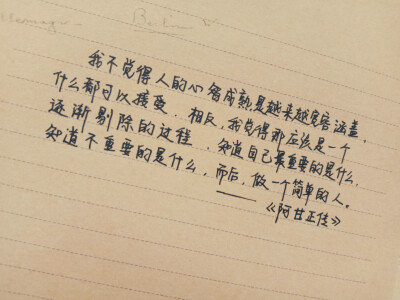 我不觉得人的心智成熟是越来越宽容涵盖,
什么都可以接受。相反,我觉得那应该是一个
逐渐剔除的过程,知道自己最重要的是什么,
知道不重要的是什么,而后,做一个简单的人。
——《阿甘正传》